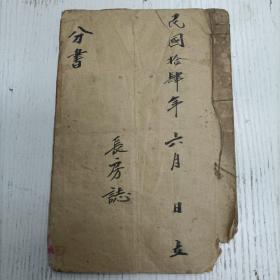 民國拾肆年六月 日立
長房誌
分書